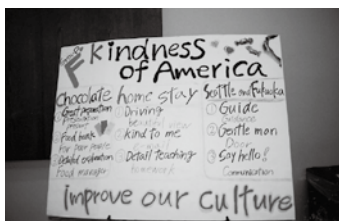 Kindness
of America
chocolate
① Great preparation
② Food bank
for poor people
③ Detailed explanation
Food manager
home stay
① Driving
② kind to me
③ Detail teaching
homework
Seattle and Fukuoka
① Guide
② Gentle man
Door
③ Say hello!
Communication
improve our culture